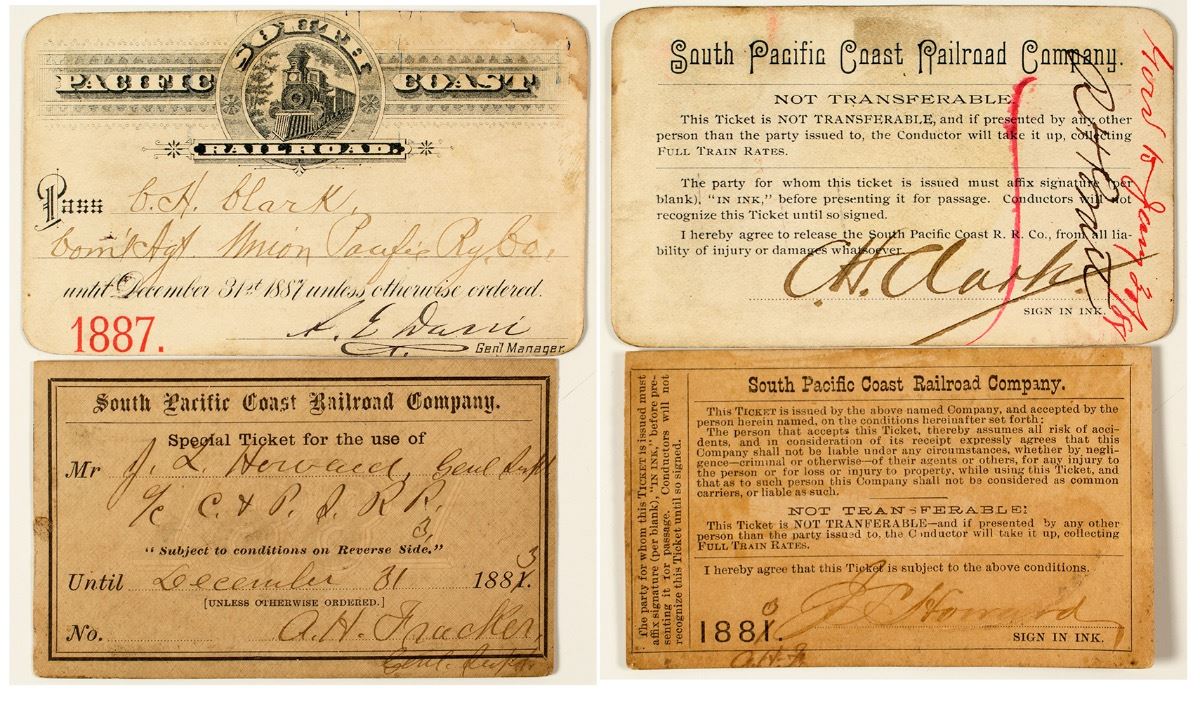 SOUTH
PACIFIC COAST
RAILROAD.
Pass C. H. Clark,
Com'l Agt Union Pacific Ry. Co.,
until December 31st 1887 unless otherwise ordered.
1887.
Gen'l Manager.
South Pacific Coast Railroad Company.
NOT TRANSFERABLE.
This Ticket is NOT TRANSFERABLE, and if presented by any other
person than the party issued to, the Conductor will take it up, collecting
FULL TRAIN RATES.
The party for whom this ticket is issued must affix signature (per
blank), "IN INK," before presenting it for passage. Conductors will not
recognize this Ticket until so signed.
I hereby agree to release the South Pacific Coast R. R. Co., from all lia-
bility of injury or damages whatsoever.
C. H. Clark.
SIGN IN INK.
South Pacific Coast Railroad Company.
Special Ticket for the use of
Mr J. L. Howard, Genl Supt
C. & P. S. R R.
3
"Subject to conditions on Reverse Side."
Until December 31 1881. 3
[UNLESS OTHERWISE ORDERED.]
No. A. H. Fracker,
Genl. Supt.
The party for whom this TICKET is issued must
affix signature (per blank), "IN INK," before pre-
senting it for passage. Conductors will not
recognize this Ticket until so signed.
South Pacific Coast Railroad Company.
This TICKET is issued by the above named Company, and accepted by the
person herein named, on the conditions hereinafter set forth:
The person that accepts this Ticket, thereby assumes all risk of acci-
dents, and in consideration of its receipt expressly agrees that this
Company shall not be liable under any circumstances, whether by negli-
gence—criminal or otherwise—of their agents or others, for any injury to
the person or for loss or injury to property, while using this Ticket, and
that as to such person this Company shall not be considered as common
carriers, or liable as such.
NOT TRANSFERABLE:
This Ticket is NOT TRANFERABLE—and if presented by any other
person than the party issued to, the Conductor will take it up, collecting
FULL TRAIN RATES.
I hereby agree that this Ticket is subject to the above conditions.
J L Howard
1881. 3
SIGN IN INK.
A. H. F.